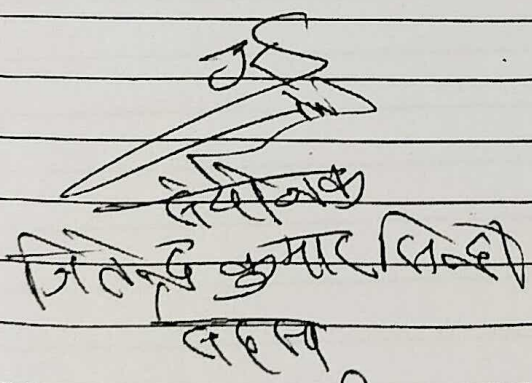 संयोजक
जितेन्द्र कुमार सिन्हा
सदस्य